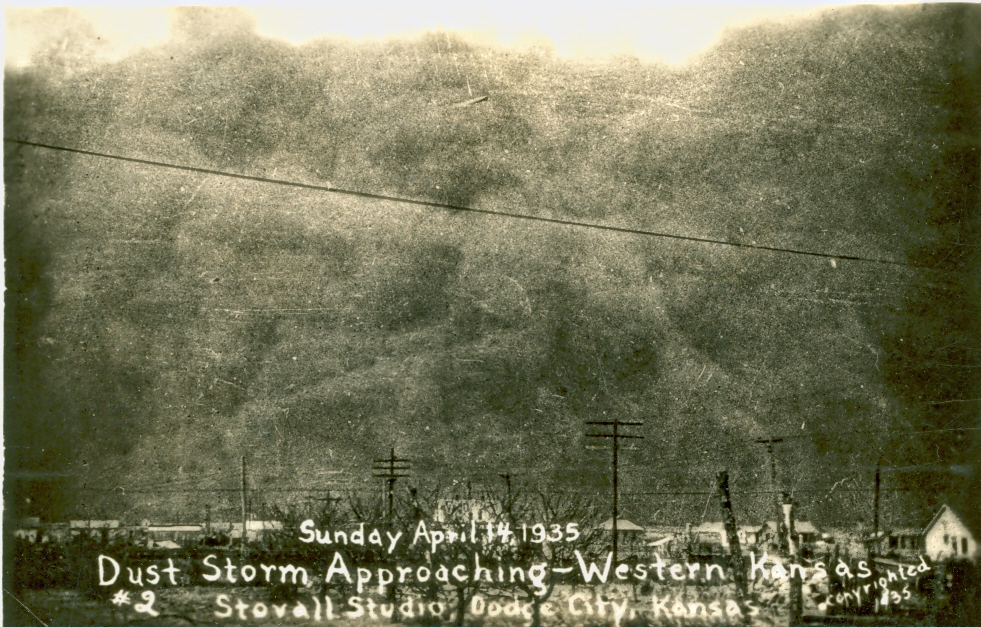 Sunday April 14 1935
Dust Storm Approaching-Western Kansas
#2 Stovall Studio, Dodge City, Kansas
copyrighted
1935